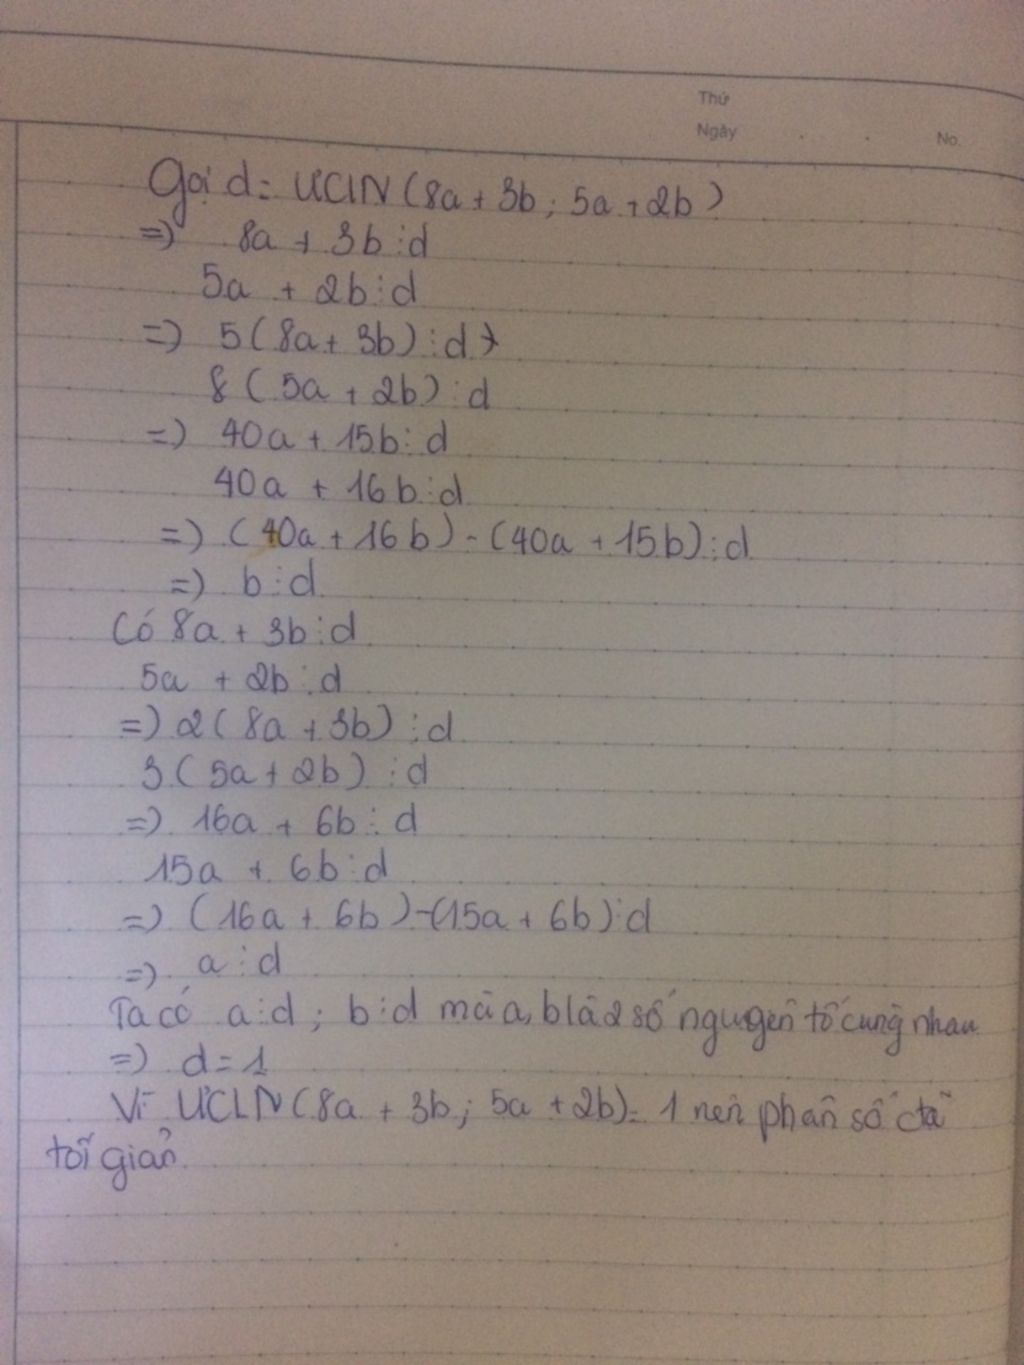 Thứ
Ngày
No.
Gọi d = ƯCLN (8a + 3b ; 5a + 2b)
=> 8a + 3b ⋮ d
5a + 2b ⋮ d
=> 5 ( 8a + 3b ) ⋮ d
8 ( 5a + 2b ) ⋮ d
=> 40a + 15b ⋮ d
40a + 16b ⋮ d
=> ( 40a + 16b ) - (40a + 15b) ⋮ d
=> b ⋮ d
Có 8a + 3b ⋮ d
5a + 2b ⋮ d
=> 2 ( 8a + 3b ) ⋮ d
3 ( 5a + 2b ) ⋮ d
=> 16a + 6b ⋮ d
15a + 6b ⋮ d
=> (16a + 6b ) - (15a + 6b) ⋮ d
=> a ⋮ d
Ta có a ⋮ d ; b ⋮ d mà a, b là 2 số nguyên tố cùng nhau
=> d = 1
Vì ƯCLN (8a + 3b ; 5a + 2b) = 1 nên phân số đã
tối giản.